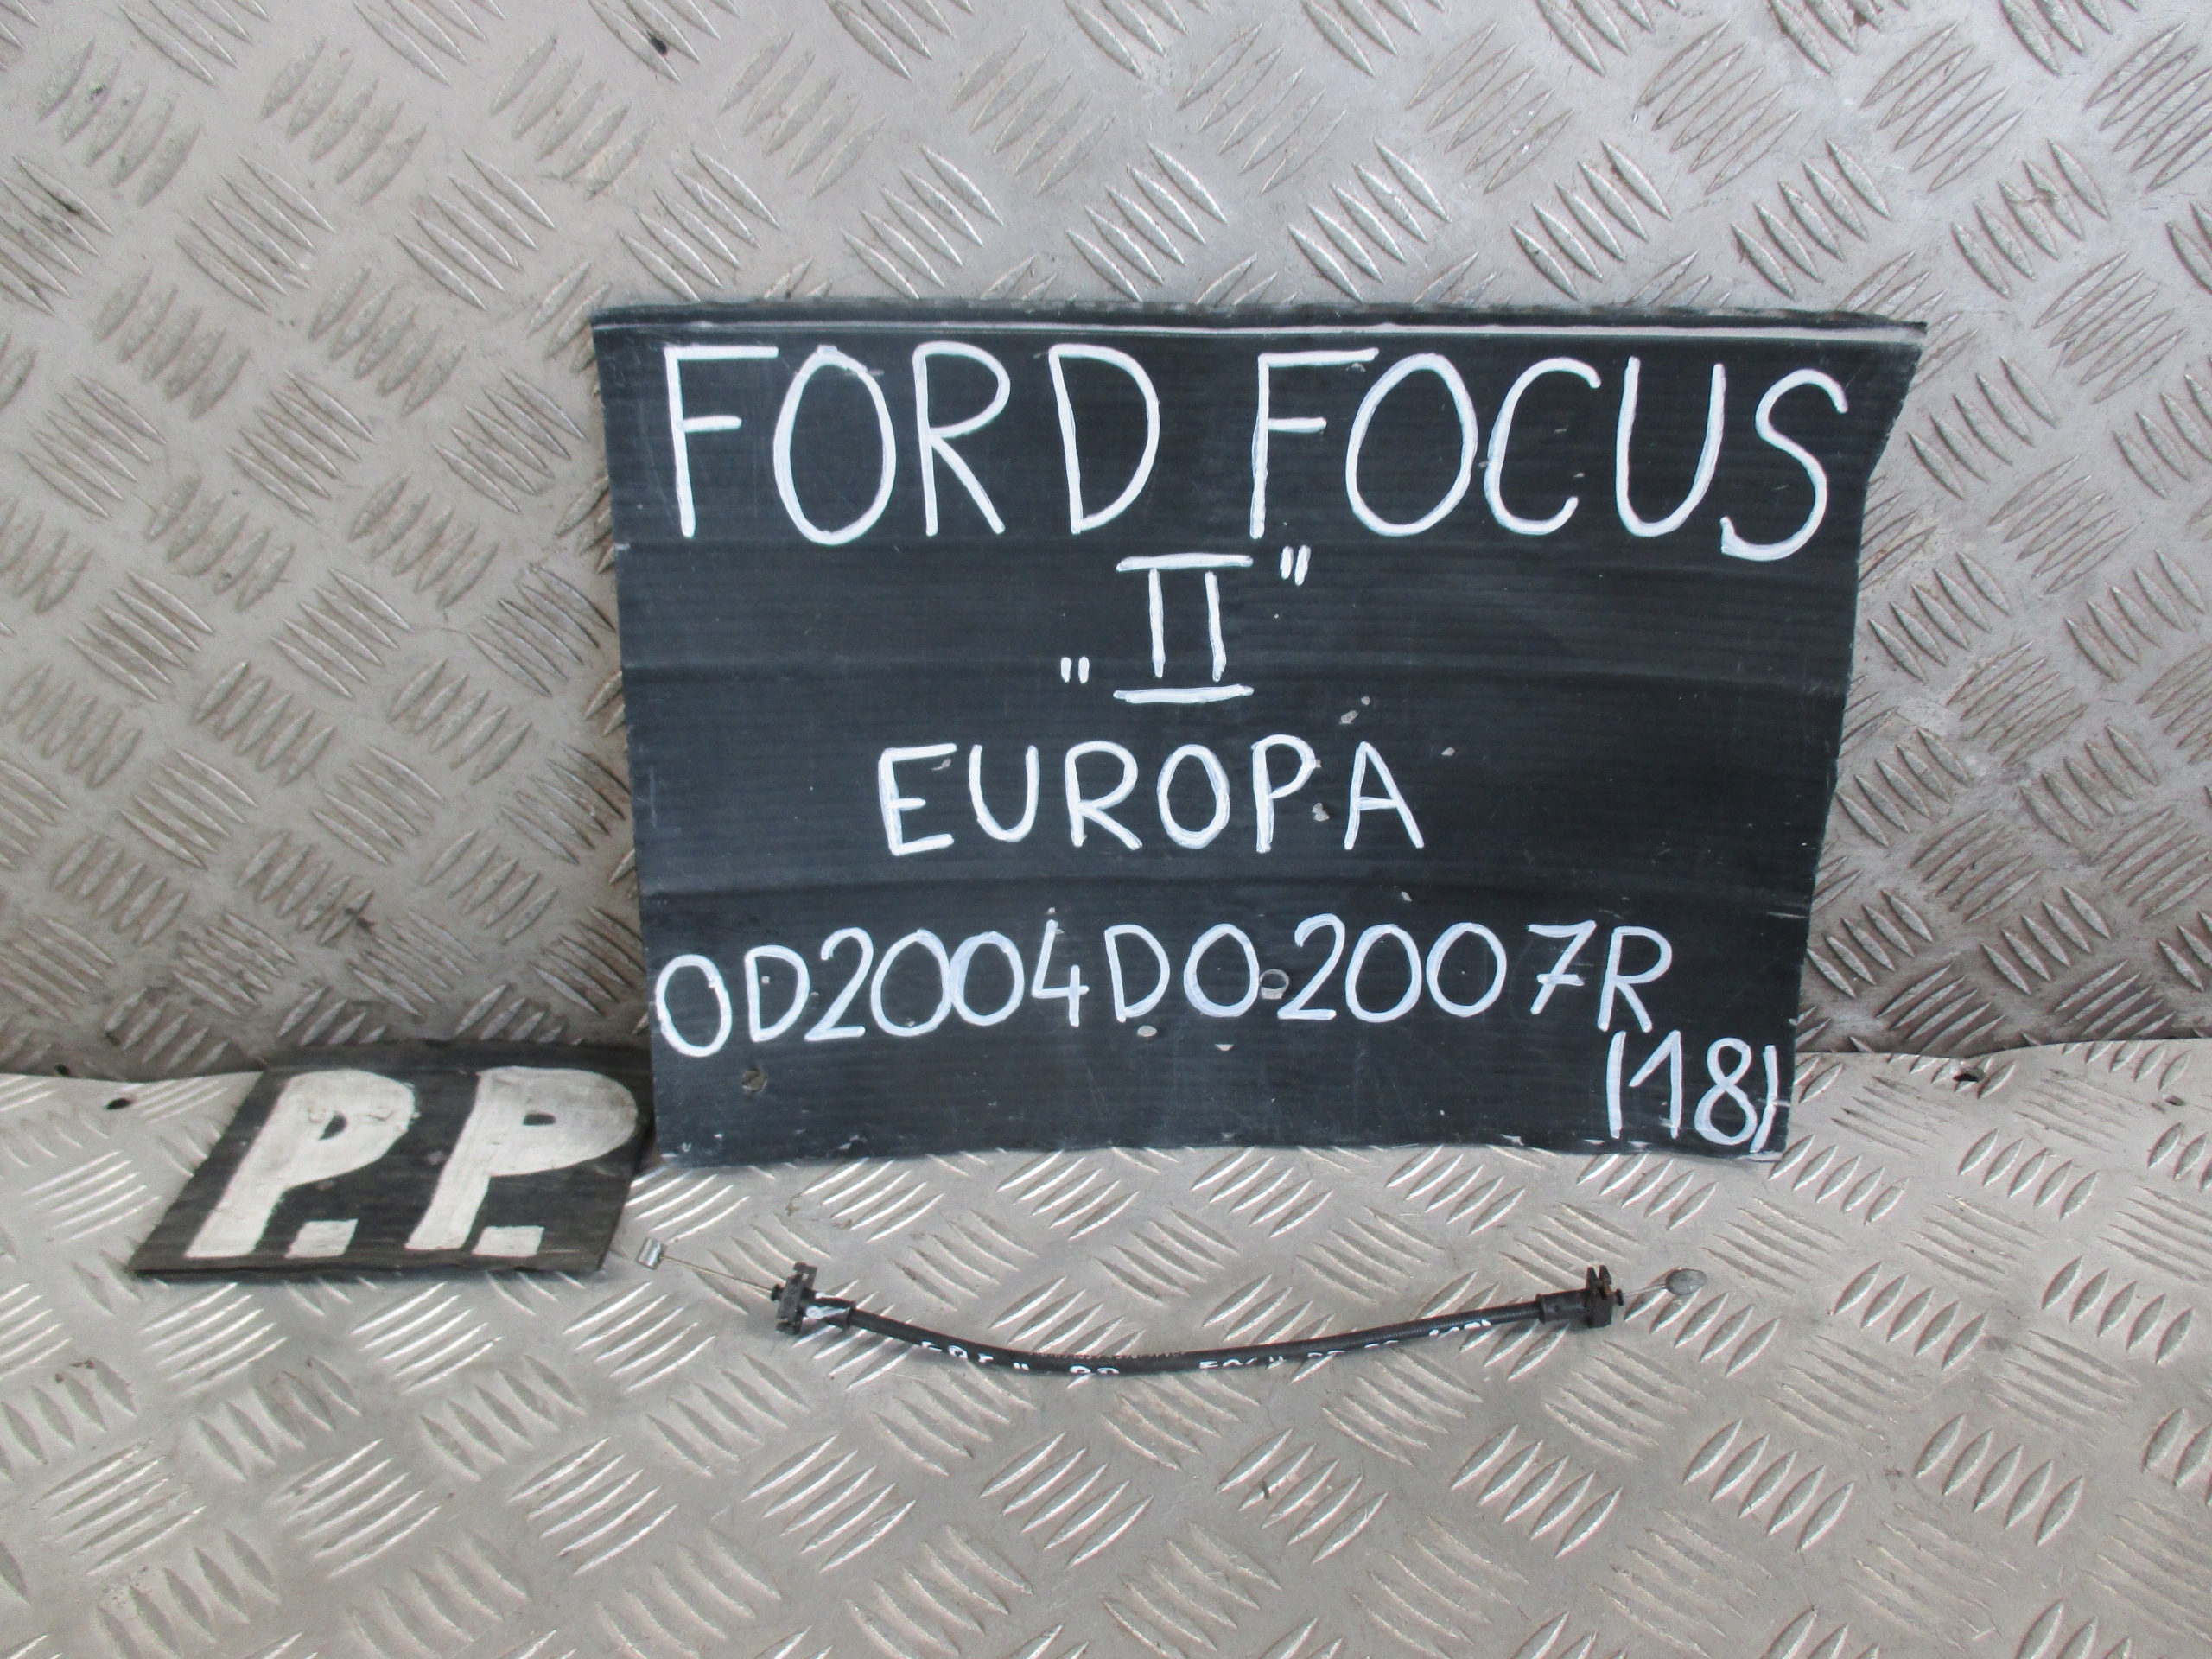 FORD FOCUS
„II”
EUROPA
OD2004DO2007R
(18)
P.P.